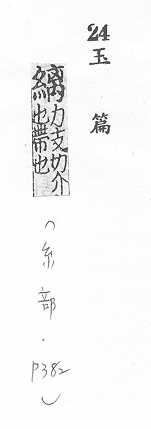 24
玉篇
縭力支切介
也帶也
(糸部.P382)